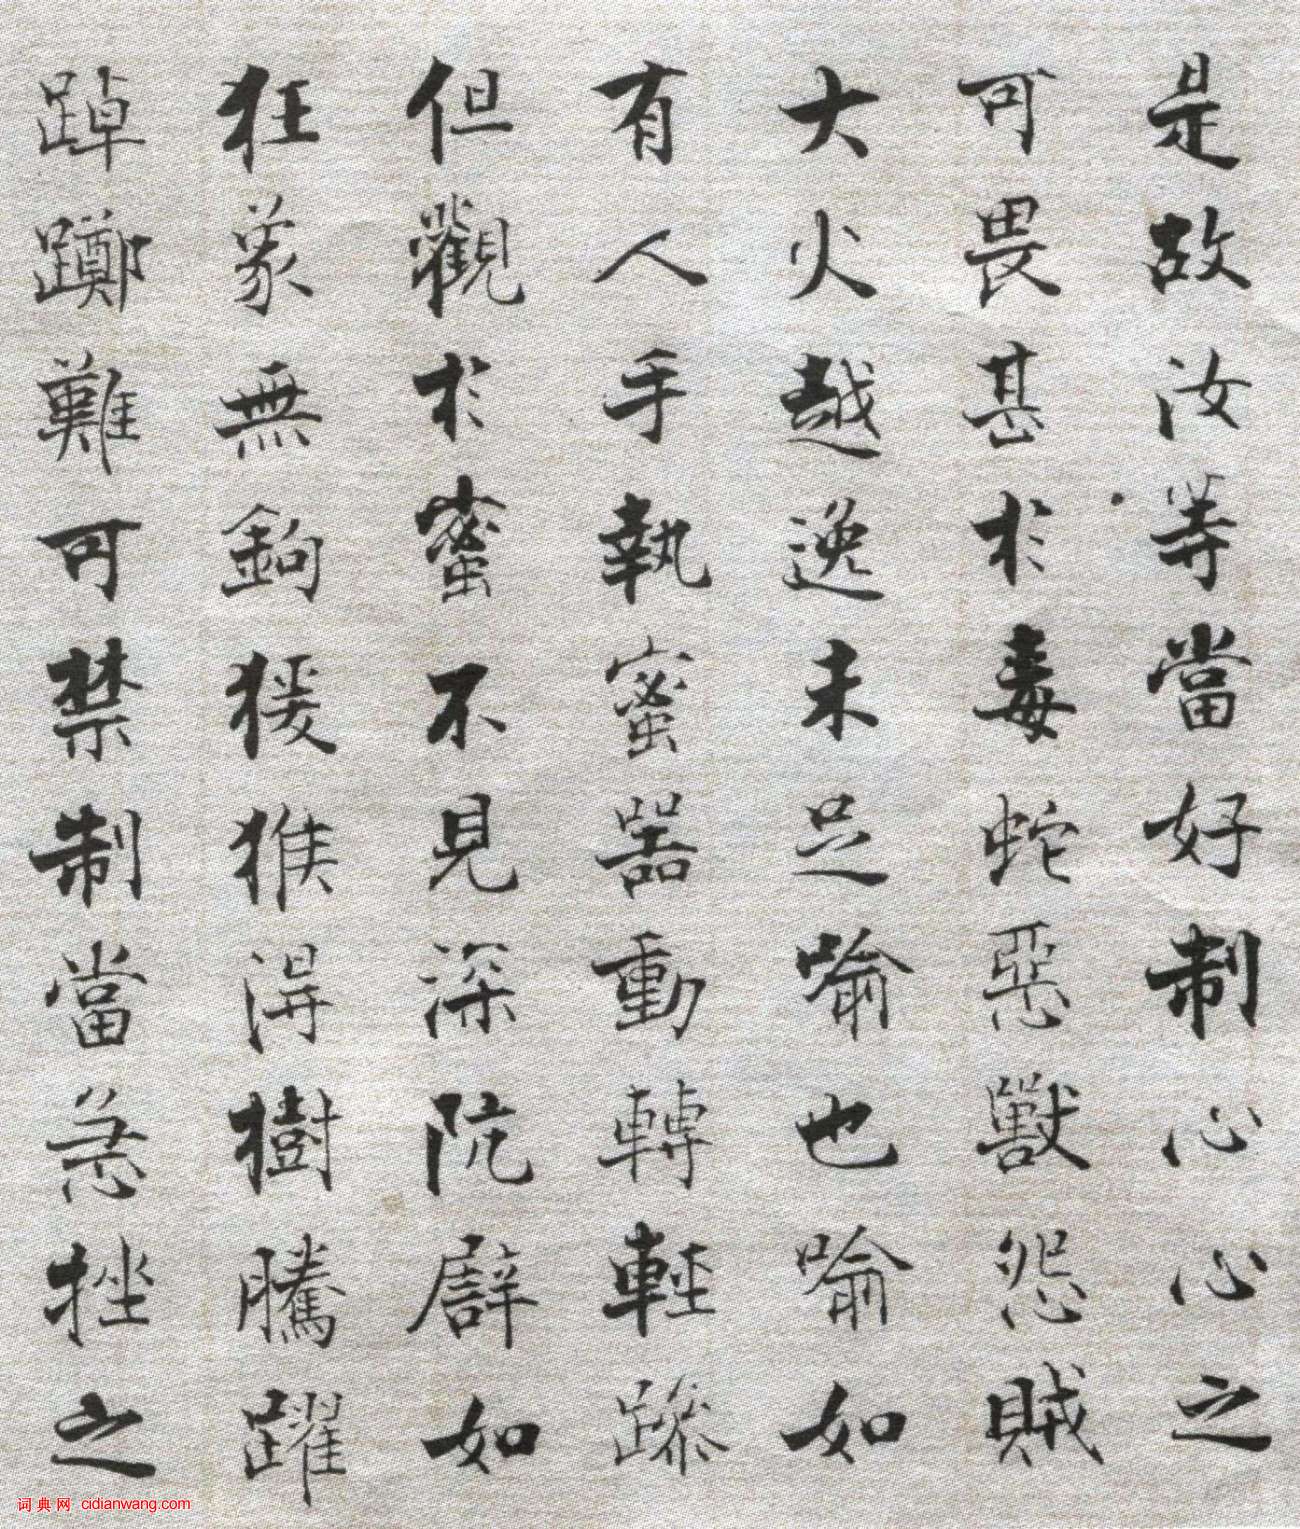 是故汝等當好制心心之
可畏甚於毒蛇惡獸怨賊
大火越逸未足喻也喻如
有人手執蜜器動轉輕躁
但觀於蜜不見深阬譬如
狂象無鉤猨猴得樹騰躍
踔躑難可禁制當急挫之
词典网 cidianwang.com